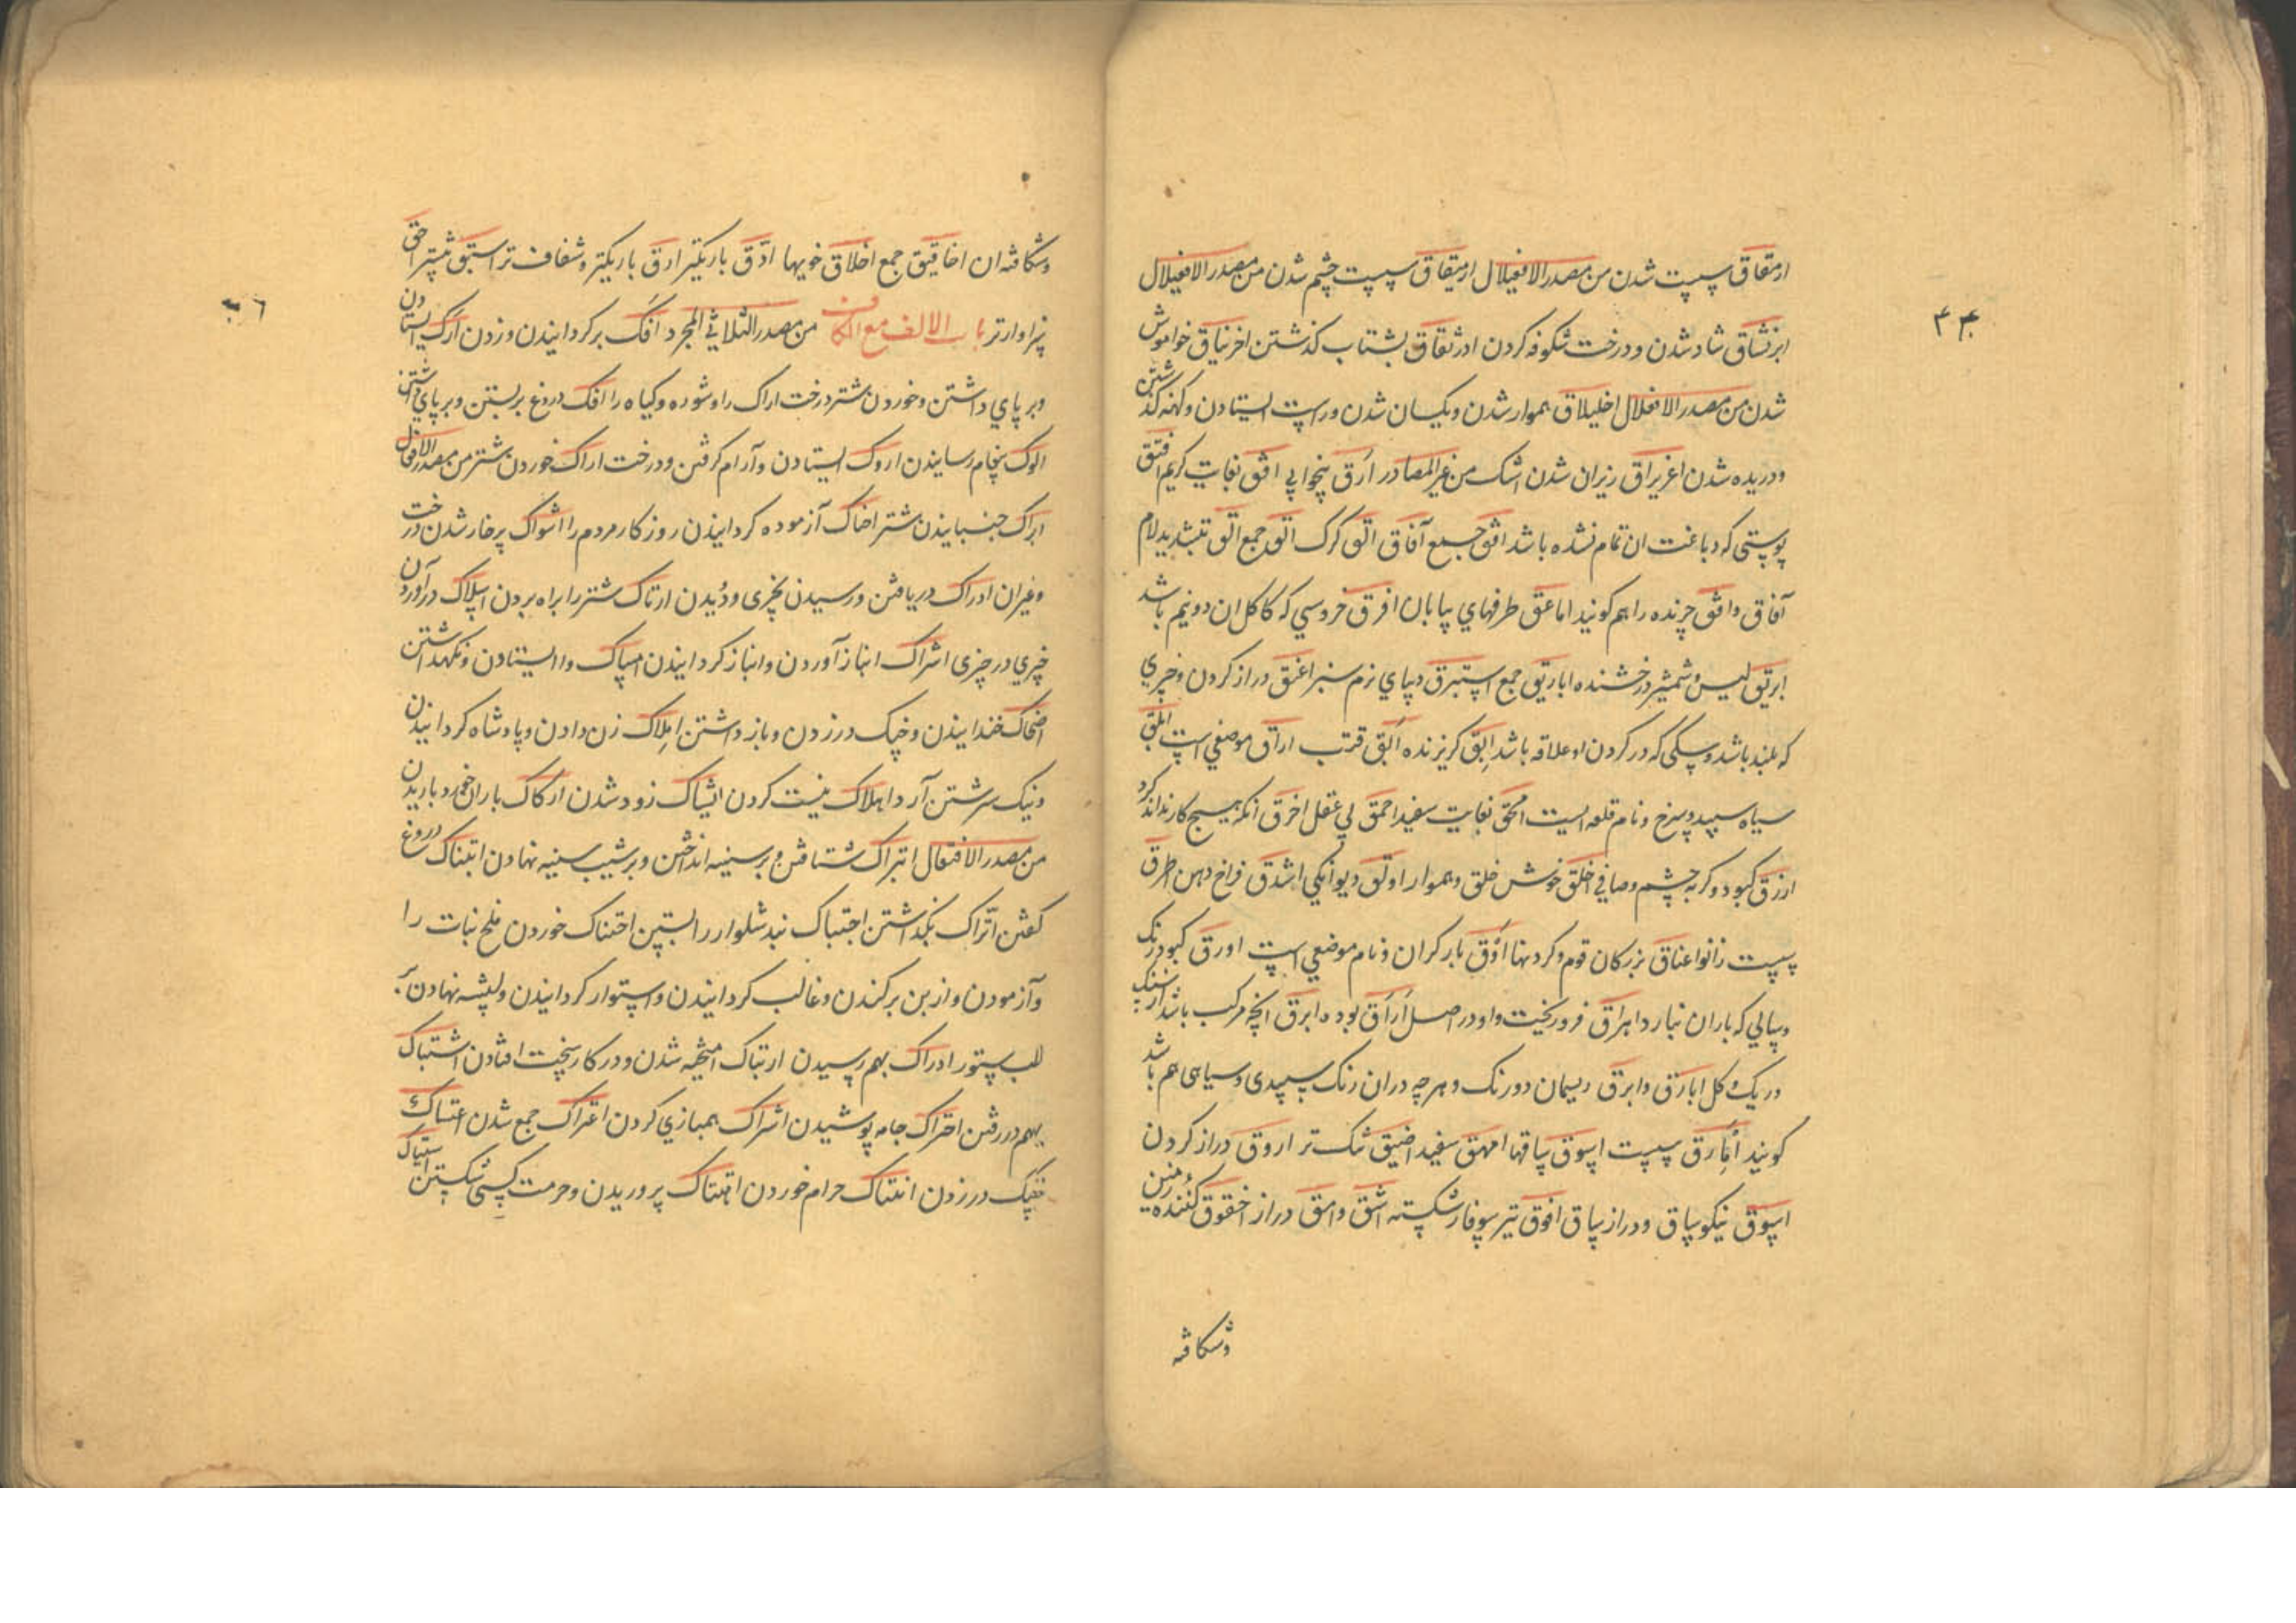 ۴۴
ارمقاق سپست شدن من مصدر الافعیلال ارمیقاق سپست چشم شدن من مصدر الافعیلال
ابرنشاق شاد شدن و درخت شکوفه کردن ادرنقاق بشتاب کذشتن اخرنباق خواموش
شدن من مصدر الافعلال اخلیلاق هموار شدن و یکسان شدن و راست ایستادن و کهنه کذشتن
و دریده شدن اغریراق ریزان شدن اشک من غیر المصادر ارق بیخوابی افق بغایت کریم افیق
پوستی که دباغت ان تمام نشده باشد افق جمیع آفاق الق کرک القه جمع الق بتشدید لام
آفاق وافق چرنده را هم کویند اماعق طرفهای بیابان افرق خروسی که کاکل ان دو نیم باشد
ابریق و شمشیر درخشنده اباریق جمع استبرق دیبای نرم سبز اعنق دراز کردن و چیزی
که بلند باشد و سکی که در کردن او علاقه باشد ابق کریزنده ابق قنب اراق موضعی است ابلق
سیاه سپید و سرخ و نام قلعه ایست امحق بغایت سفید احمق بی عقل اخرق انکه هیچ کار نداند کرد
ازرق کبود و کربه چشم و صافی اخلق خوش خلق و هموار اولق دیوانکی اشدق فراخ دهن اطرق
سپست زانو اعناق بزرکان قوم و کردنها اوق بار کران و نام موضعی است اورق کبودرنک
و سالی که باران نبارد اهراق فرو ریخت و او در اصل اراق بوده ابرق انچه مرکب باشد از سنک
و ریک و کل ابارق و ابرق ریسمان دو رنک و هرچه دران رنک سپیدی و سیاهی هم باشد
کویند سپست اسوق ساقها امهق سفید اضیق تنک تر اروق دراز کردن
اسوق نیکو ساق و دراز ساق افوق تیر سوفار شکسته اشق و امق دراز اخقوق کننده زمین
وشکافته
وشکافته ان اخاقیق جمع اخلاق خویها ادق باریکتر ارق باریکتر و شفاف تر اسبق پیشتر احق
سزاوارتر باب الالف مع الکاف من مصدر الثلاثی المجرد افک برکردانیدن و زدن ارک ایستادن
و بر پای داشتن و خوردن شتر درخت اراک را و شوره و کیاه را افک دروغ بربستن و برپای داشتن
الوک پیغام رسانیدن اروک ایستادن و آرام کرفتن و درخت اراک خوردن شتر من مصدر الافعال
ابراک جنبانیدن شتر احناک آزموده کردانیدن روزکار مردم را اشواک پرخار شدن درخت
و غیر ان ادراک دریافتن و رسیدن بچیزی و دیدن ارتاک شتر را براه بردن اسلاک درآوردن
چیزی در چیزی اشراک انباز آوردن و انباز کردانیدن امساک وا ایستادن و نکهداشتن
اضحاک خندانیدن و درزدن و باز داشتن املاک زن دادن و پادشاه کردانیدن
و نیک سرشتن آرد اهلاک نیست کردن ایشاک زود شدن ارکاک باران خورد باریدن
من مصدر الافتعال ابتراک شتافتن و بر سینه انداختن و برشیب سینه نهادن ابتناک دروغ
کفتن اتراک بکذاشتن احتباک بند شلوار را بستن احتناک خوردن ملخ نبات را
و آزمودن و از بن برکندن و غالب کردانیدن و استوار کردانیدن و نهادن بر
لب ستور ادراک بهم رسیدن ارتباک امیخته شدن و در کار سخت افتادن اشتباک
بهم در رفتن احتراک جامه پوشیدن اشتراک همبازی کردن اعتراک جمع شدن
درزدن انتهاک حرام خوردن اهتتاک پرده دریدن و حرمت کسی شکستن استیاک